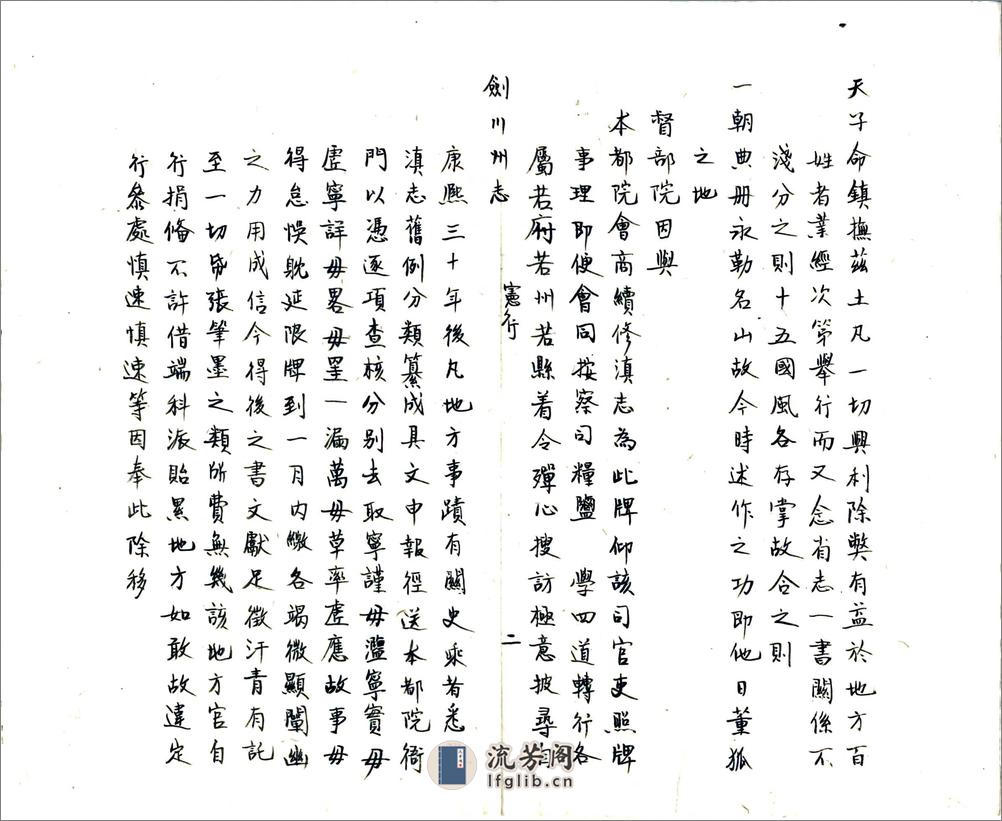 天子命鎮撫茲土凡一切興利除弊有益於地方百
姓者業經次第舉行而又念省志一書關係不
淺分之則十五國風各存掌故合之則
一朝典冊永勒名山故今時述作之功即他日董狐
之地
督部院因與
本都院會商續修滇志為此牌仰該司官吏照牌
事理即便會同按察司糧鹽 學四道轉行各
屬若府若州若縣着令殫心搜訪極意披尋自
劍川州志 憲行 二
康熙三十年後凡地方事蹟有關史乘者悉
滇志舊例分類纂成具文申報徑送本都院衙
門以憑逐項查核分別去取寧謹毋濫寧實毋
虛寧詳毋畧毋罣一漏萬毋草率虛應故事毋
得怠悞躭延限牌到一月內繳各竭微顯闡幽
之力用成信今得後之書文獻足徵汗青有託
至一切昬張筆墨之類所費無幾該地方官自
行捐俻不許借端科派貽累地方如敢故違定
行叅處慎速慎速等因奉此除移
流芳阁
lfglib.cn